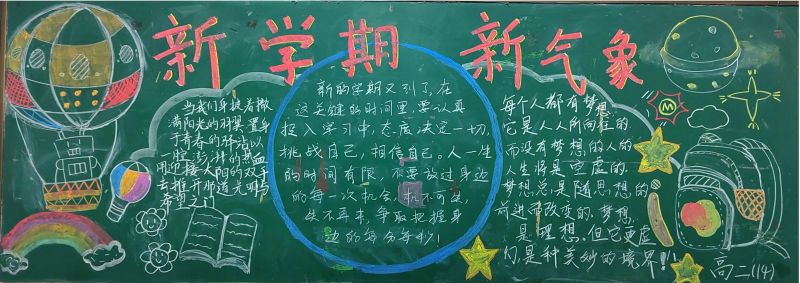 新学期 新气象
当我们身披着撒
满阳光的羽翼置身
于青春的驿站以
腔澎湃的热血
用迎接人阴的双手
去推开那道光明与
希望之门
新的学期又到了,在
这关键的时间里,要认真
投入学习中,态度决定一切,
挑战自己,相信自己。人一生
的时间有限,不要放过身边
的每一次机会,机不可失,
失不再来,争取把握身
边的每分每秒!
每个人都有梦想
它是人人所向往的
而没有梦想的人的
人生将是空虚的.
梦想总是随思想的
前进而改变的,梦想,
是理想,但它更虚
幻,是种美妙的境界!!
M
高二(14)